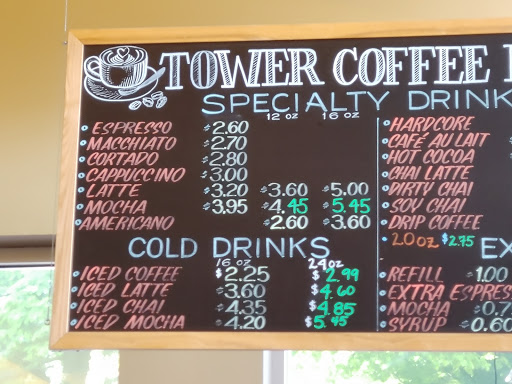 TOWER COFFEE
SPECIALTY DRINK
12 oz 16 oz
ESPRESSO $2.60
MACCHIATO $2.70
CORTADO $2.80
CAPPUCCINO $3.00
LATTE $3.20 $3.60 $5.00
MOCHA $3.95 $4.45 $5.45
AMERICANO $2.60 $3.60
COLD DRINKS
16 oz 24 oz
ICED COFFEE $2.25 $2.99
ICED LATTE $3.60 $4.60
ICED CHAI $4.35 $4.85
ICED MOCHA $4.20 $5.45
HARDCORE
CAFÉ AU LAIT
HOT COCOA
CHAI LATTE
DIRTY CHAI
SOY CHAI
DRIP COFFEE
20 oz $2.75
EX
REFILL $1.00
EXTRA ESPRES
MOCHA $0.7
SYRUP $0.60